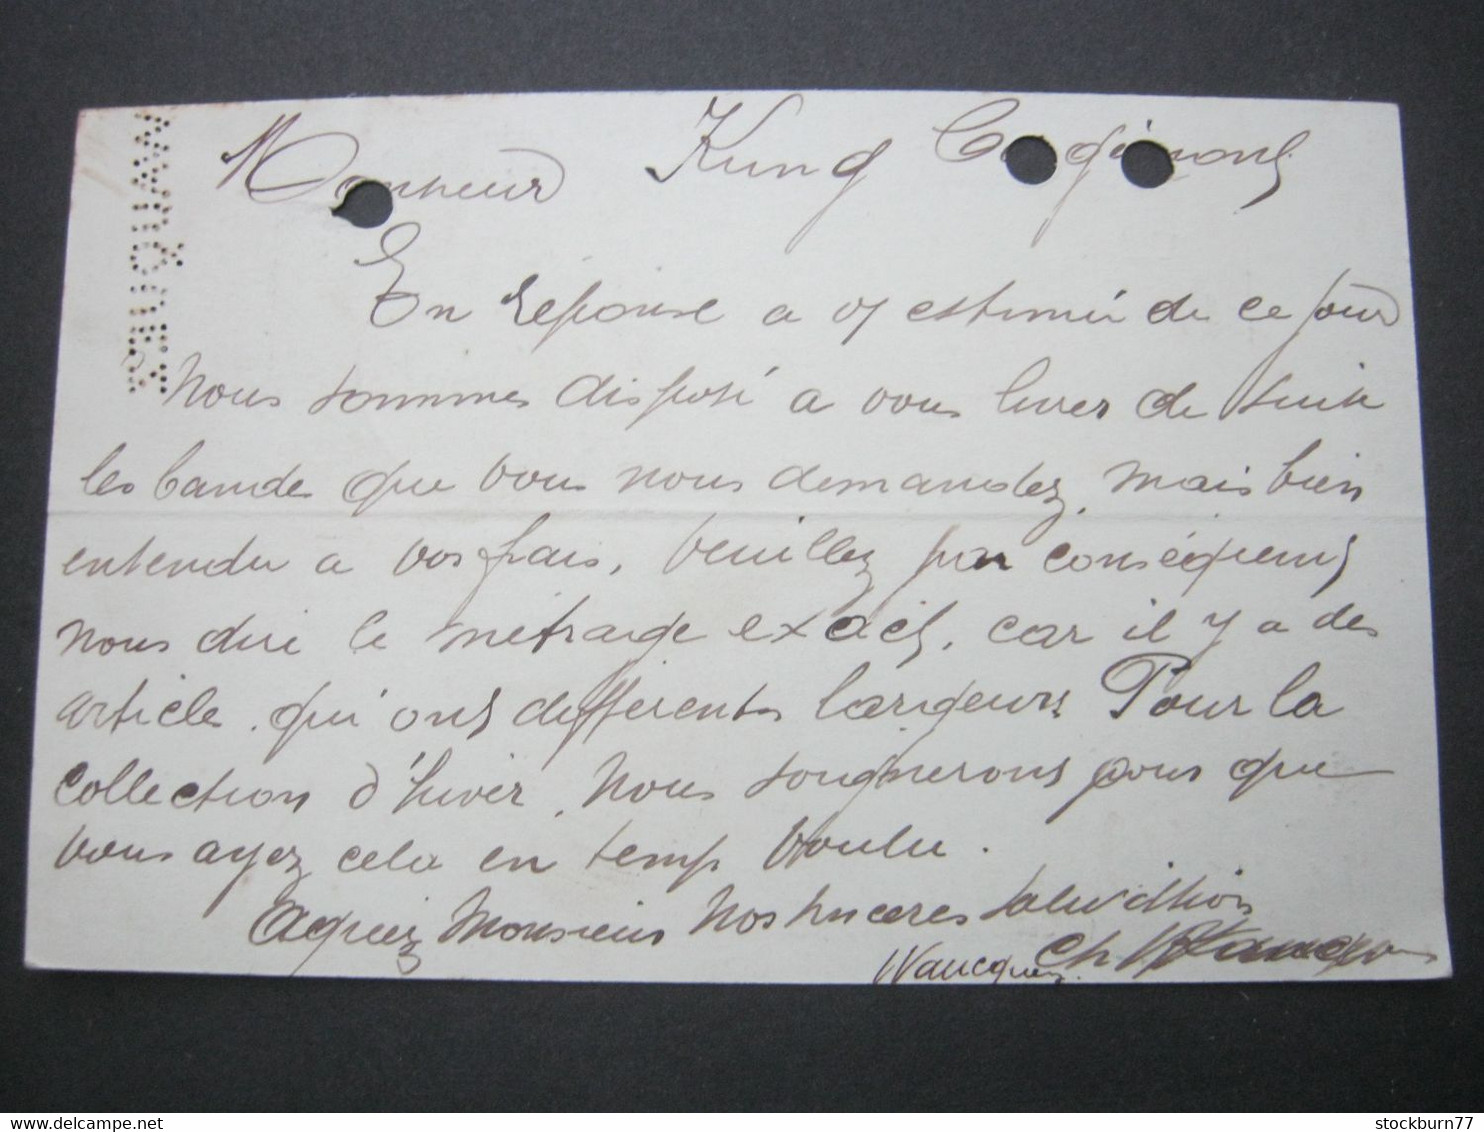 Monsieur Kung
En réponse a v/ estimée de ce jour
Nous sommes disposé a vous livrer de suite
les bande que vous nous demandez, mais bien
entendu a vos frais, Veuillez par conséquent
nous dire le métrage exact, car il y a des
article qui ont differents largeurs Pour la
collection d'hiver, Nous soignerons pour que
vous ayez cela en temp voulu.
Agreez Monsieur Nos sinceres
Ch
stockburn77